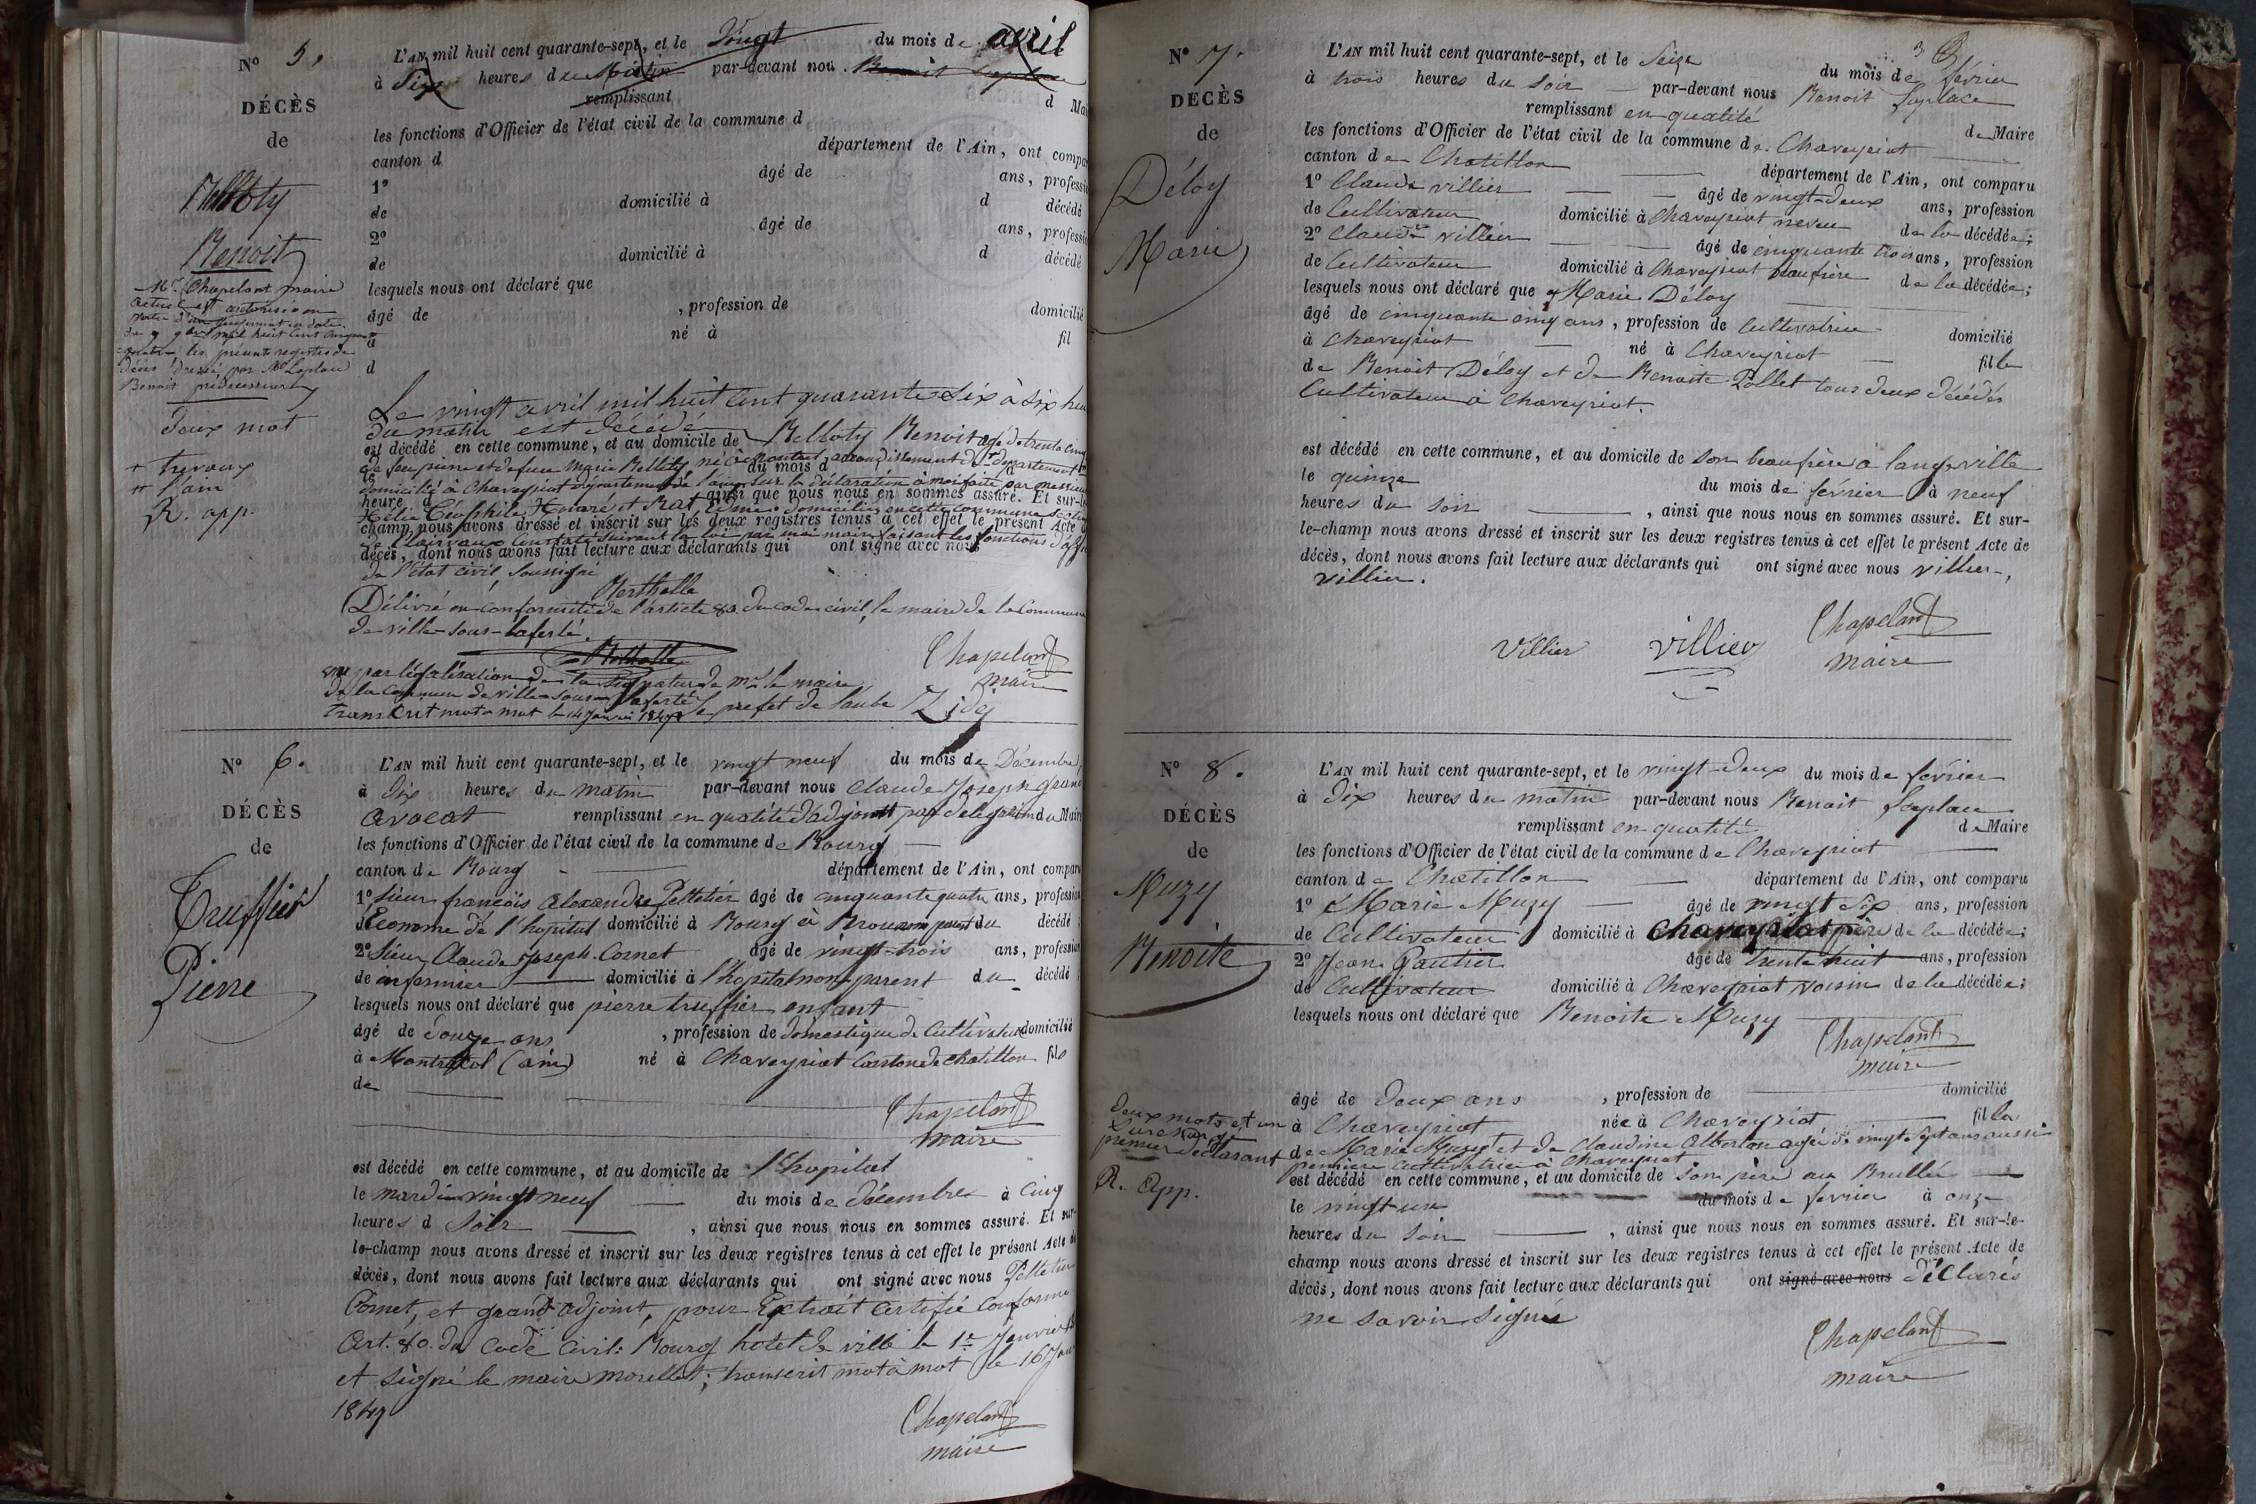 N° 5.
DÉCÈS
de
Belloty
Benoit
Mr. Chapelant maire
actuel est autorisé en
vertu d'un jugement en date
du 9 mil huit cent cinquante
les présents registres de
décès dressé par Mr Laplace
Benoit prédécesseur
deux mot
+ trevoux
++ l'ain
R. app.
L'AN mil huit cent quarante-sept, et le Vingt du mois de avril
à Six heures du Matin par-devant nous Benoit Laplace
remplissant d Mai
les fonctions d'Officier de l'état civil de la commune d
canton d département de l'Ain, ont compar
1° âgé de ans, professi
de domicilié à d décédé
2° âgé de ans, professi
de domicilié à d décédé
lesquels nous ont déclaré que
âgé de , profession de domicilié
à né à fil
d
Le vingt avril mil huit cent quarante six à six heu
du matin est décédé
est décédé en cette commune, et au domicile de Belloty Benoit agé de trente cinq
de feu pierre et de feue Marie Bellity né à arrondissement de + département
le du mois d à
domicilié à Chaveyriat département de l'ain sur la déclaration à moi faite par messieurs
heure d , ainsi que nous nous en sommes assuré. Et sur-le
Hélie Théophile Honoré et Prat domiciliés en cette commune section
champ nous avons dressé et inscrit sur les deux registres tenus à cet effet le présent Acte d
de Clairvaux Constaté suivant la loi par moi maire faisant les fonctions d'offi
décès, dont nous avons fait lecture aux déclarants qui ont signé avec nous
de l'état civil, soussigné
Berthelle
Délivré en conformité de l'article 80 du code civil, le maire de la Commune
de ville-sous-laferté.
Berthelle
Chapelant
maire
vu par légalisation de la signature de Mr le maire
de la Commune de ville-sous-laferté
transcrit mot a mot le 14 Janvier 1847 le prefet de l'aube Zidej
N° 6.
DÉCÈS
de
Truffier
Pierre
L'AN mil huit cent quarante-sept, et le vingt neuf du mois de Décembre
à dix heures du matin par-devant nous Claude Joseph Grand
avocat remplissant en qualité d'adjoint par délégation du Maire
les fonctions d'Officier de l'état civil de la commune de Bourg
canton de Bourg département de l'Ain, ont comparu
1° Sieur françois alexandre Pelletier âgé de cinquante quatre ans, profession
d'Econome de l'hopital domicilié à Bourg à Brou non parent du décédé ;
2° Sieur Claude Joseph Cornet âgé de vingt-trois ans, profession
de infirmier domicilié à l'hopital non parent du décédé ;
lesquels nous ont déclaré que pierre truffier enfant
âgé de douze ans , profession de domestique de Cultivateur domicilié
à Montracol (ain) né à Chaveyriat Canton de chatillon fils
de
Chapelant
maire
est décédé en cette commune, et au domicile de l'hopital
le mardi vingt neuf du mois de décembre à Cinq
heures d Soir , ainsi que nous nous en sommes assuré. Et sur-
le-champ nous avons dressé et inscrit sur les deux registres tenus à cet effet le présent Acte de
décès, dont nous avons fait lecture aux déclarants qui ont signé avec nous Pelletier
Cornet, et grand adjoint, pour Extrait certifié conforme
Art. 80. du Code Civil: Bourg hotel de ville le 1er Janvier
et signé le maire morellet; transcrit mot à mot le 16 Jan
1847
Chapelant
maire
3
N° 7.
DÉCÈS
de
Déloy
Marie
L'AN mil huit cent quarante-sept, et le Seize du mois de février
à trois heures du Soir par-devant nous Benoit Laplace
remplissant en qualité de Maire
les fonctions d'Officier de l'état civil de la commune de Chaveyriat
canton de Chatillon département de l'Ain, ont comparu
1° Claude villier âgé de vingt-deux ans, profession
de Cultivateur domicilié à Chaveyriat neveu de la décédée;
2° Claude villier âgé de cinquante trois ans, profession
de Cultivateur domicilié à Chaveyriat beaufrère de la décédée;
lesquels nous ont déclaré que Marie Déloy
âgé de cinquante cinq ans, profession de Cultivatrice domicilié
à Chaveyriat né à Chaveyriat fille
de Benoit Déloy et de Benoite Pollet tous deux décédés
Cultivateur à Chaveyriat.
est décédé en cette commune, et au domicile de son beaufrère à langeville
le quinze du mois de février à neuf
heures du soir , ainsi que nous nous en sommes assuré. Et sur-
le-champ nous avons dressé et inscrit sur les deux registres tenus à cet effet le présent Acte de
décès, dont nous avons fait lecture aux déclarants qui ont signé avec nous villier,
villier.
Villier villier Chapelant
maire
N° 8.
DÉCÈS
de
Muzy
Benoite
L'AN mil huit cent quarante-sept, et le vingt-deux du mois de février
à dix heures du matin par-devant nous Benoit Laplace
remplissant en qualité de Maire
les fonctions d'Officier de l'état civil de la commune de Chaveyriat
canton de Chatillon département de l'Ain, ont comparu
1° Marie Muzy âgé de vingt six ans, profession
de Cultivateur domicilié à Chaveyriat père de la décédée;
2° Jean Gautier âgé de trente huit ans, profession
de Cultivateur domicilié à Chaveyriat voisin de la décédée;
lesquels nous ont déclaré que Benoite Muzy
Chapelant
maire
âgé de deux ans , profession de domicilié
à Chaveyriat née à Chaveyriat fille
de Marie Muzy et de Claudine Alberton agé de vingt sept ans aussi
première Cultivatrice à Chaveyriat
est décédé en cette commune, et au domicile de son père au Brullé
le vingt-un du mois de février à onze
heures du soir , ainsi que nous nous en sommes assuré. Et sur-le-
champ nous avons dressé et inscrit sur les deux registres tenus à cet effet le présent Acte de
décès, dont nous avons fait lecture aux déclarants qui ont signé avec nous déclarés
ne savoir signée
deux mots et un
surcharge
premier déclarant
R. App.
Chapelant
maire